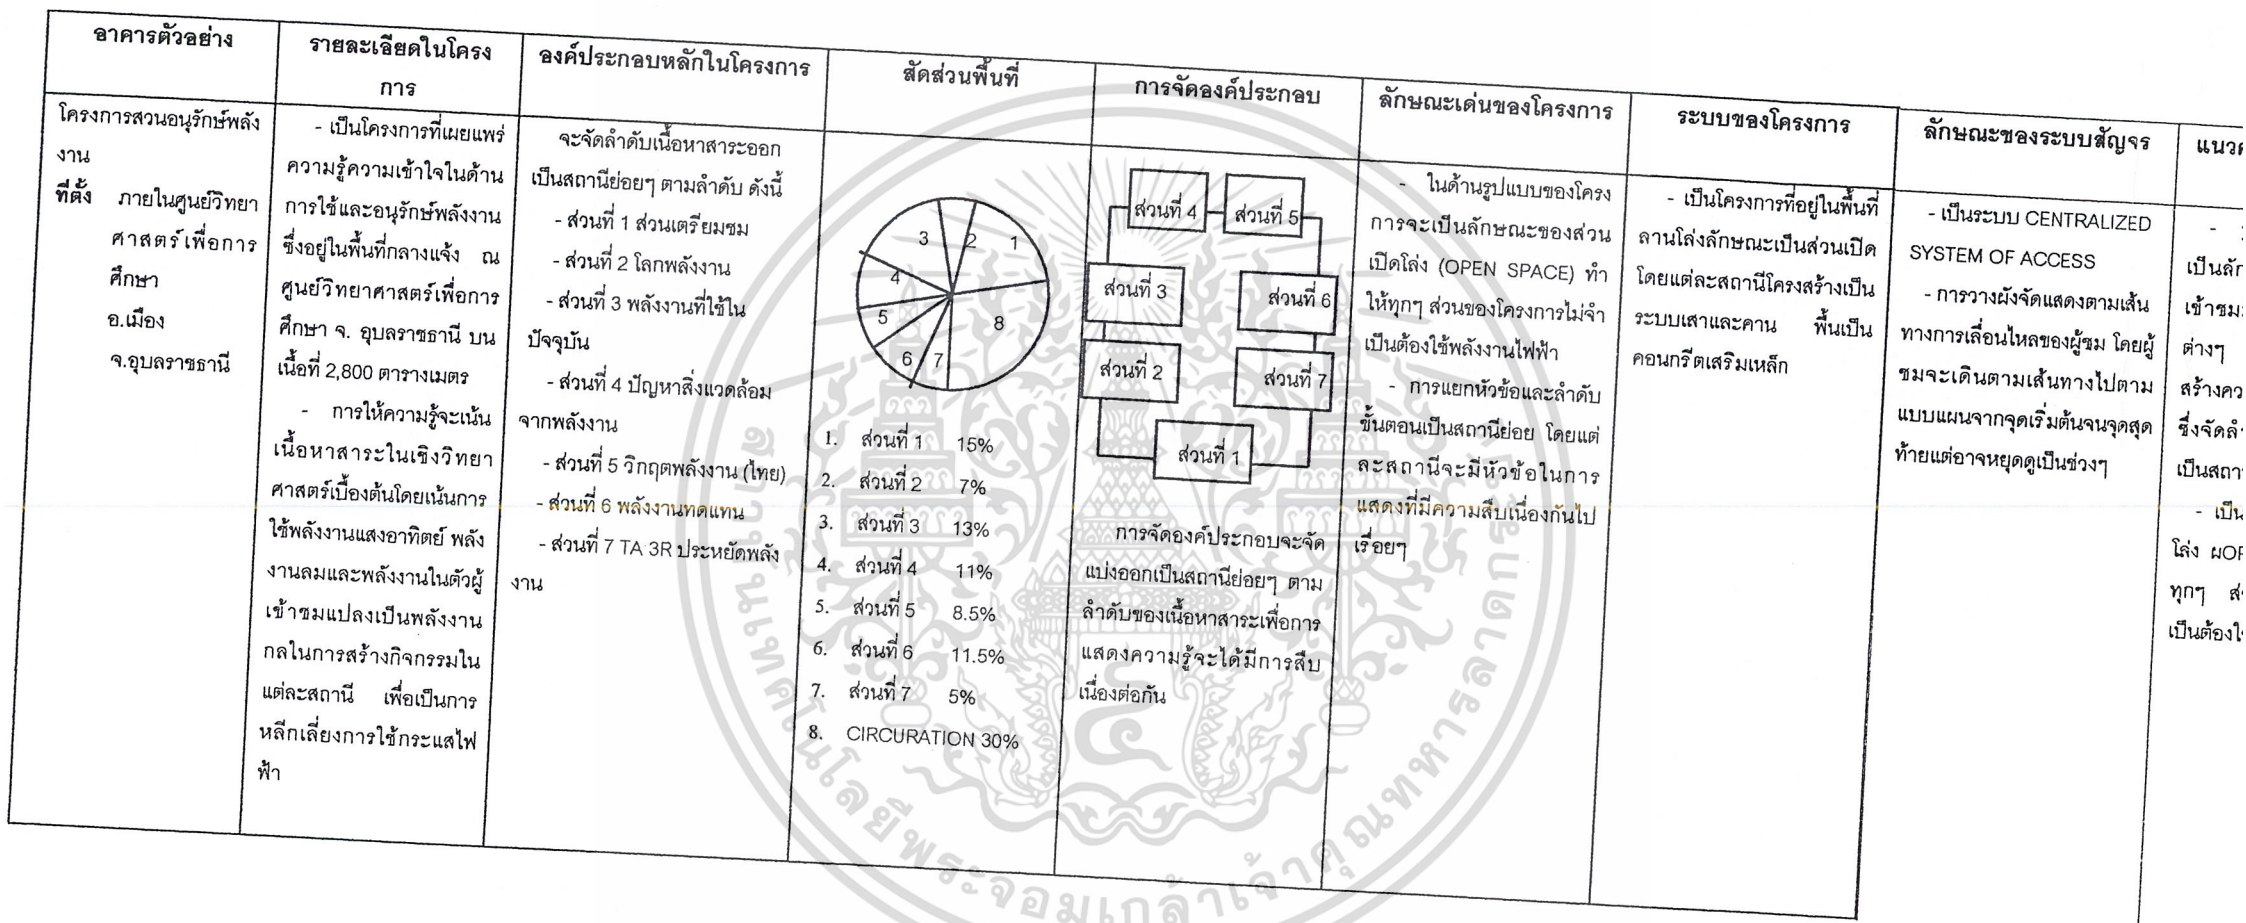 อาคารตัวอย่าง
โครงการสวนอนุรักษ์พลัง
งาน
ที่ตั้ง ภายในศูนย์วิทยา
ศาสตร์เพื่อการ
ศึกษา
อ.เมือง
จ.อุบลราชธานี
รายละเอียดในโครง
การ
- เป็นโครงการที่เผยแพร่
ความรู้ความเข้าใจในด้าน
การใช้และอนุรักษ์พลังงาน
ซึ่งอยู่ในพื้นที่กลางแจ้ง ณ
ศูนย์วิทยาศาสตร์เพื่อการ
ศึกษา จ. อุบลราชธานี บน
เนื้อที่ 2,800 ตารางเมตร
- การให้ความรู้จะเน้น
เนื้อหาสาระในเชิงวิทยา
ศาสตร์เบื้องต้นโดยเน้นการ
ใช้พลังงานแสงอาทิตย์ พลัง
งานลมและพลังงานในตัวผู้
เข้าชมแปลงเป็นพลังงาน
กลในการสร้างกิจกรรมใน
แต่ละสถานี เพื่อเป็นการ
หลีกเลี่ยงการใช้กระแสไฟ
ฟ้า
องค์ประกอบหลักในโครงการ
จะจัดลำดับเนื้อหาสาระออก
เป็นสถานีย่อยๆ ตามลำดับ ดังนี้
- ส่วนที่ 1 ส่วนเตรียมชม
- ส่วนที่ 2 โลกพลังงาน
- ส่วนที่ 3 พลังงานที่ใช้ใน
ปัจจุบัน
- ส่วนที่ 4 ปัญหาสิ่งแวดล้อม
จากพลังงาน
- ส่วนที่ 5 วิกฤตพลังงาน (ไทย)
- ส่วนที่ 6 พลังงานทดแทน
- ส่วนที่ 7 TA 3R ประหยัดพลัง
งาน
สัดส่วนพื้นที่
3
2
1
4
5
8
6
7
1. ส่วนที่ 1 15%
2. ส่วนที่ 2 7%
3. ส่วนที่ 3 13%
4. ส่วนที่ 4 11%
5. ส่วนที่ 5 8.5%
6. ส่วนที่ 6 11.5%
7. ส่วนที่ 7 5%
8. CIRCURATION 30%
การจัดองค์ประกอบ
ส่วนที่ 4
ส่วนที่ 5
ส่วนที่ 3
ส่วนที่ 6
ส่วนที่ 2
ส่วนที่ 7
ส่วนที่ 1
การจัดองค์ประกอบจะจัด
แบ่งออกเป็นสถานีย่อยๆ ตาม
ลำดับของเนื้อหาสาระเพื่อการ
แสดงความรู้จะได้มีการสืบ
เนื่องต่อกัน
ลักษณะเด่นของโครงการ
- ในด้านรูปแบบของโครง
การจะเป็นลักษณะของส่วน
เปิดโล่ง (OPEN SPACE) ทำ
ให้ทุกๆ ส่วนของโครงการไม่จำ
เป็นต้องใช้พลังงานไฟฟ้า
- การแยกหัวข้อและลำดับ
ขั้นตอนเป็นสถานีย่อย โดยแต่
ละสถานีจะมีหัวข้อในการ
แสดงที่มีความสืบเนื่องกันไป
เรื่อยๆ
ระบบของโครงการ
- เป็นโครงการที่อยู่ในพื้นที่
ลานโล่งลักษณะเป็นส่วนเปิด
โดยแต่ละสถานีโครงสร้างเป็น
ระบบเสาและคาน พื้นเป็น
คอนกรีตเสริมเหล็ก
ลักษณะของระบบสัญจร
- เป็นระบบ CENTRALIZED
SYSTEM OF ACCESS
- การวางผังจัดแสดงตามเส้น
ทางการเลื่อนไหลของผู้ชม โดยผู้
ชมจะเดินตามเส้นทางไปตาม
แบบแผนจากจุดเริ่มต้นจนจุดสุด
ท้ายแต่อาจหยุดดูเป็นช่วงๆ
เป็นลัก
เข้าชม
ต่างๆ
สร้างคว
ซึ่งจัดลำ
เป็นสถา
- เป็น
โล่ง ผOP
ทุกๆ ส่
เป็นต้องใ
สถาบันเทคโนโลยีพระจอมเกล้าเจ้าคุณทหารลาดกระบัง